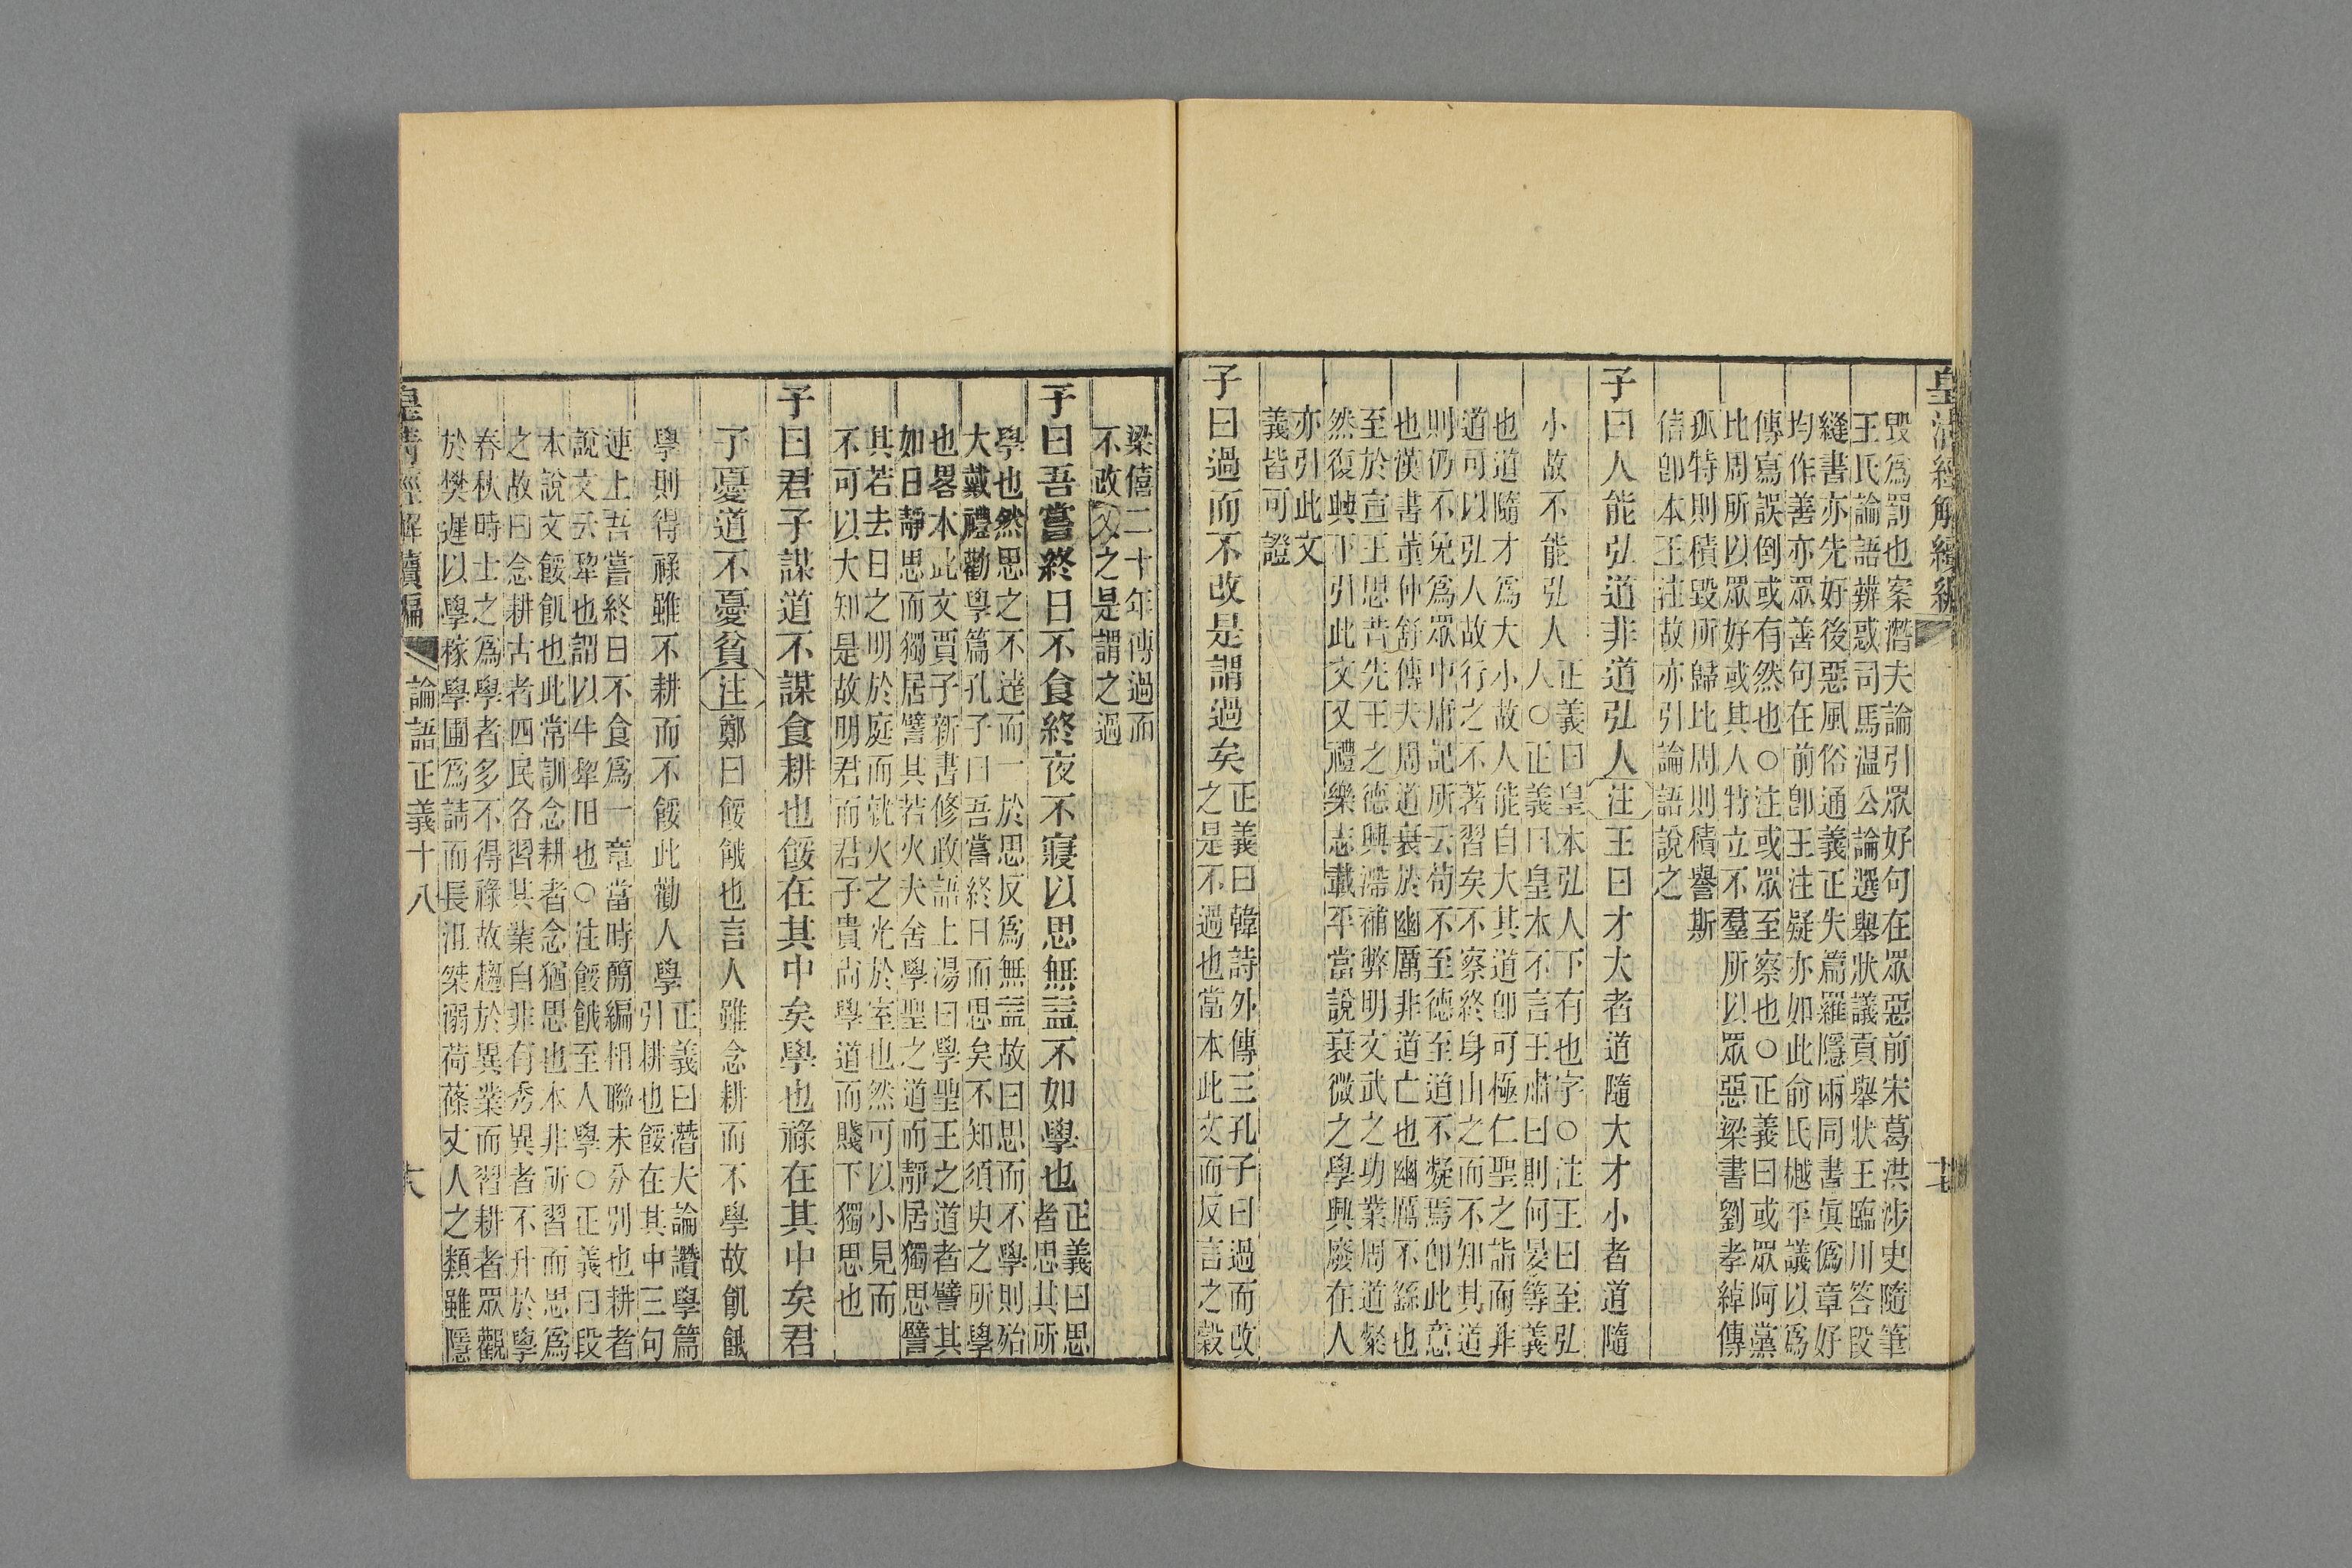 皇清經解續編
毀爲罰也案潛夫論引眾好句在眾惡前宋葛洪涉史隨筆
王氏論語辨惑司馬温公論選舉狀議貢舉狀王臨川答段
縫書亦先好後惡風俗通義正失篇羅隱兩同書眞僞章好
均作善亦眾善句在前卽王注疑亦如此俞氏樾平議以爲
傳寫誤倒或有然也○注或眾至察也○正義曰或眾阿黨
比周所以眾好或其人特立不羣所以眾惡梁書劉孝綽傳
孤特則積毀所歸比周則積譽斯
信卽本王注故亦引論語說之
子曰人能弘道非道弘人注王曰才大者道隨大才小者道隨
小故不能弘人
正義曰皇本弘人下有也字○注王曰至弘
人○正義曰皇本不言王肅曰則何晏等義
也道隨才爲大小故人能自大其道卽可極仁聖之詣而非
道可以弘人故行之不著習矣不察終身由之而不知其道
則仍不免爲眾中庸記所云苟不至德至道不凝焉卽此意
也漢書董仲舒傳夫周道衰於幽厲非道亡也幽厲不繇也
至於宣王思昔先王之德興滯補弊明文武之功業周道粲
然復興下引此文又禮樂志載平當說衰微之學興廢在人
亦引此文
義皆可證
子曰過而不改是謂過矣
正義曰韓詩外傳三孔子曰過而改
之是不過也當本此文而反言之穀
梁僖二十年傳過而
不改又之是謂之過
子曰吾嘗終日不食終夜不寢以思無益不如學也
正義曰思
者思其所
學也然思之不達而一於思反爲無益故曰思而不學則殆
大戴禮勸學篇孔子曰吾嘗終日而思矣不知須臾之所學
也畧本此文賈子新書修政語上湯曰學聖王之道者譬其
如日靜思而獨居譬其若火夫舍學聖之道而靜居獨思譬
其若去日之明於庭而就火之光於室也然可以小見而
不可以大知是故明君而君子貴尚學道而賤下獨思也
子曰君子謀道不謀食耕也餒在其中矣學也祿在其中矣君
子憂道不憂貧注鄭曰餒餓也言人雖念耕而不學故飢餓
學則得祿雖不耕而不餒此勸人學
正義曰潛夫論讚學篇
引耕也餒在其中三句
連上吾嘗終日不食爲一章當時簡編相聯未分別也耕者
說文云犂也謂以牛犂田也○注餒餓至人學○正義曰段
本說文餒飢也此常訓念耕者念猶思也本非所習而思爲
之故曰念耕古者四民各習其業自非有秀異者不升於學
春秋時士之爲學者多不得祿故趨於異業而習耕者眾觀
於樊遲以學稼學圃爲請而長沮桀溺荷蓧丈人之類雖隱
皇清經解續編
論語正義十八